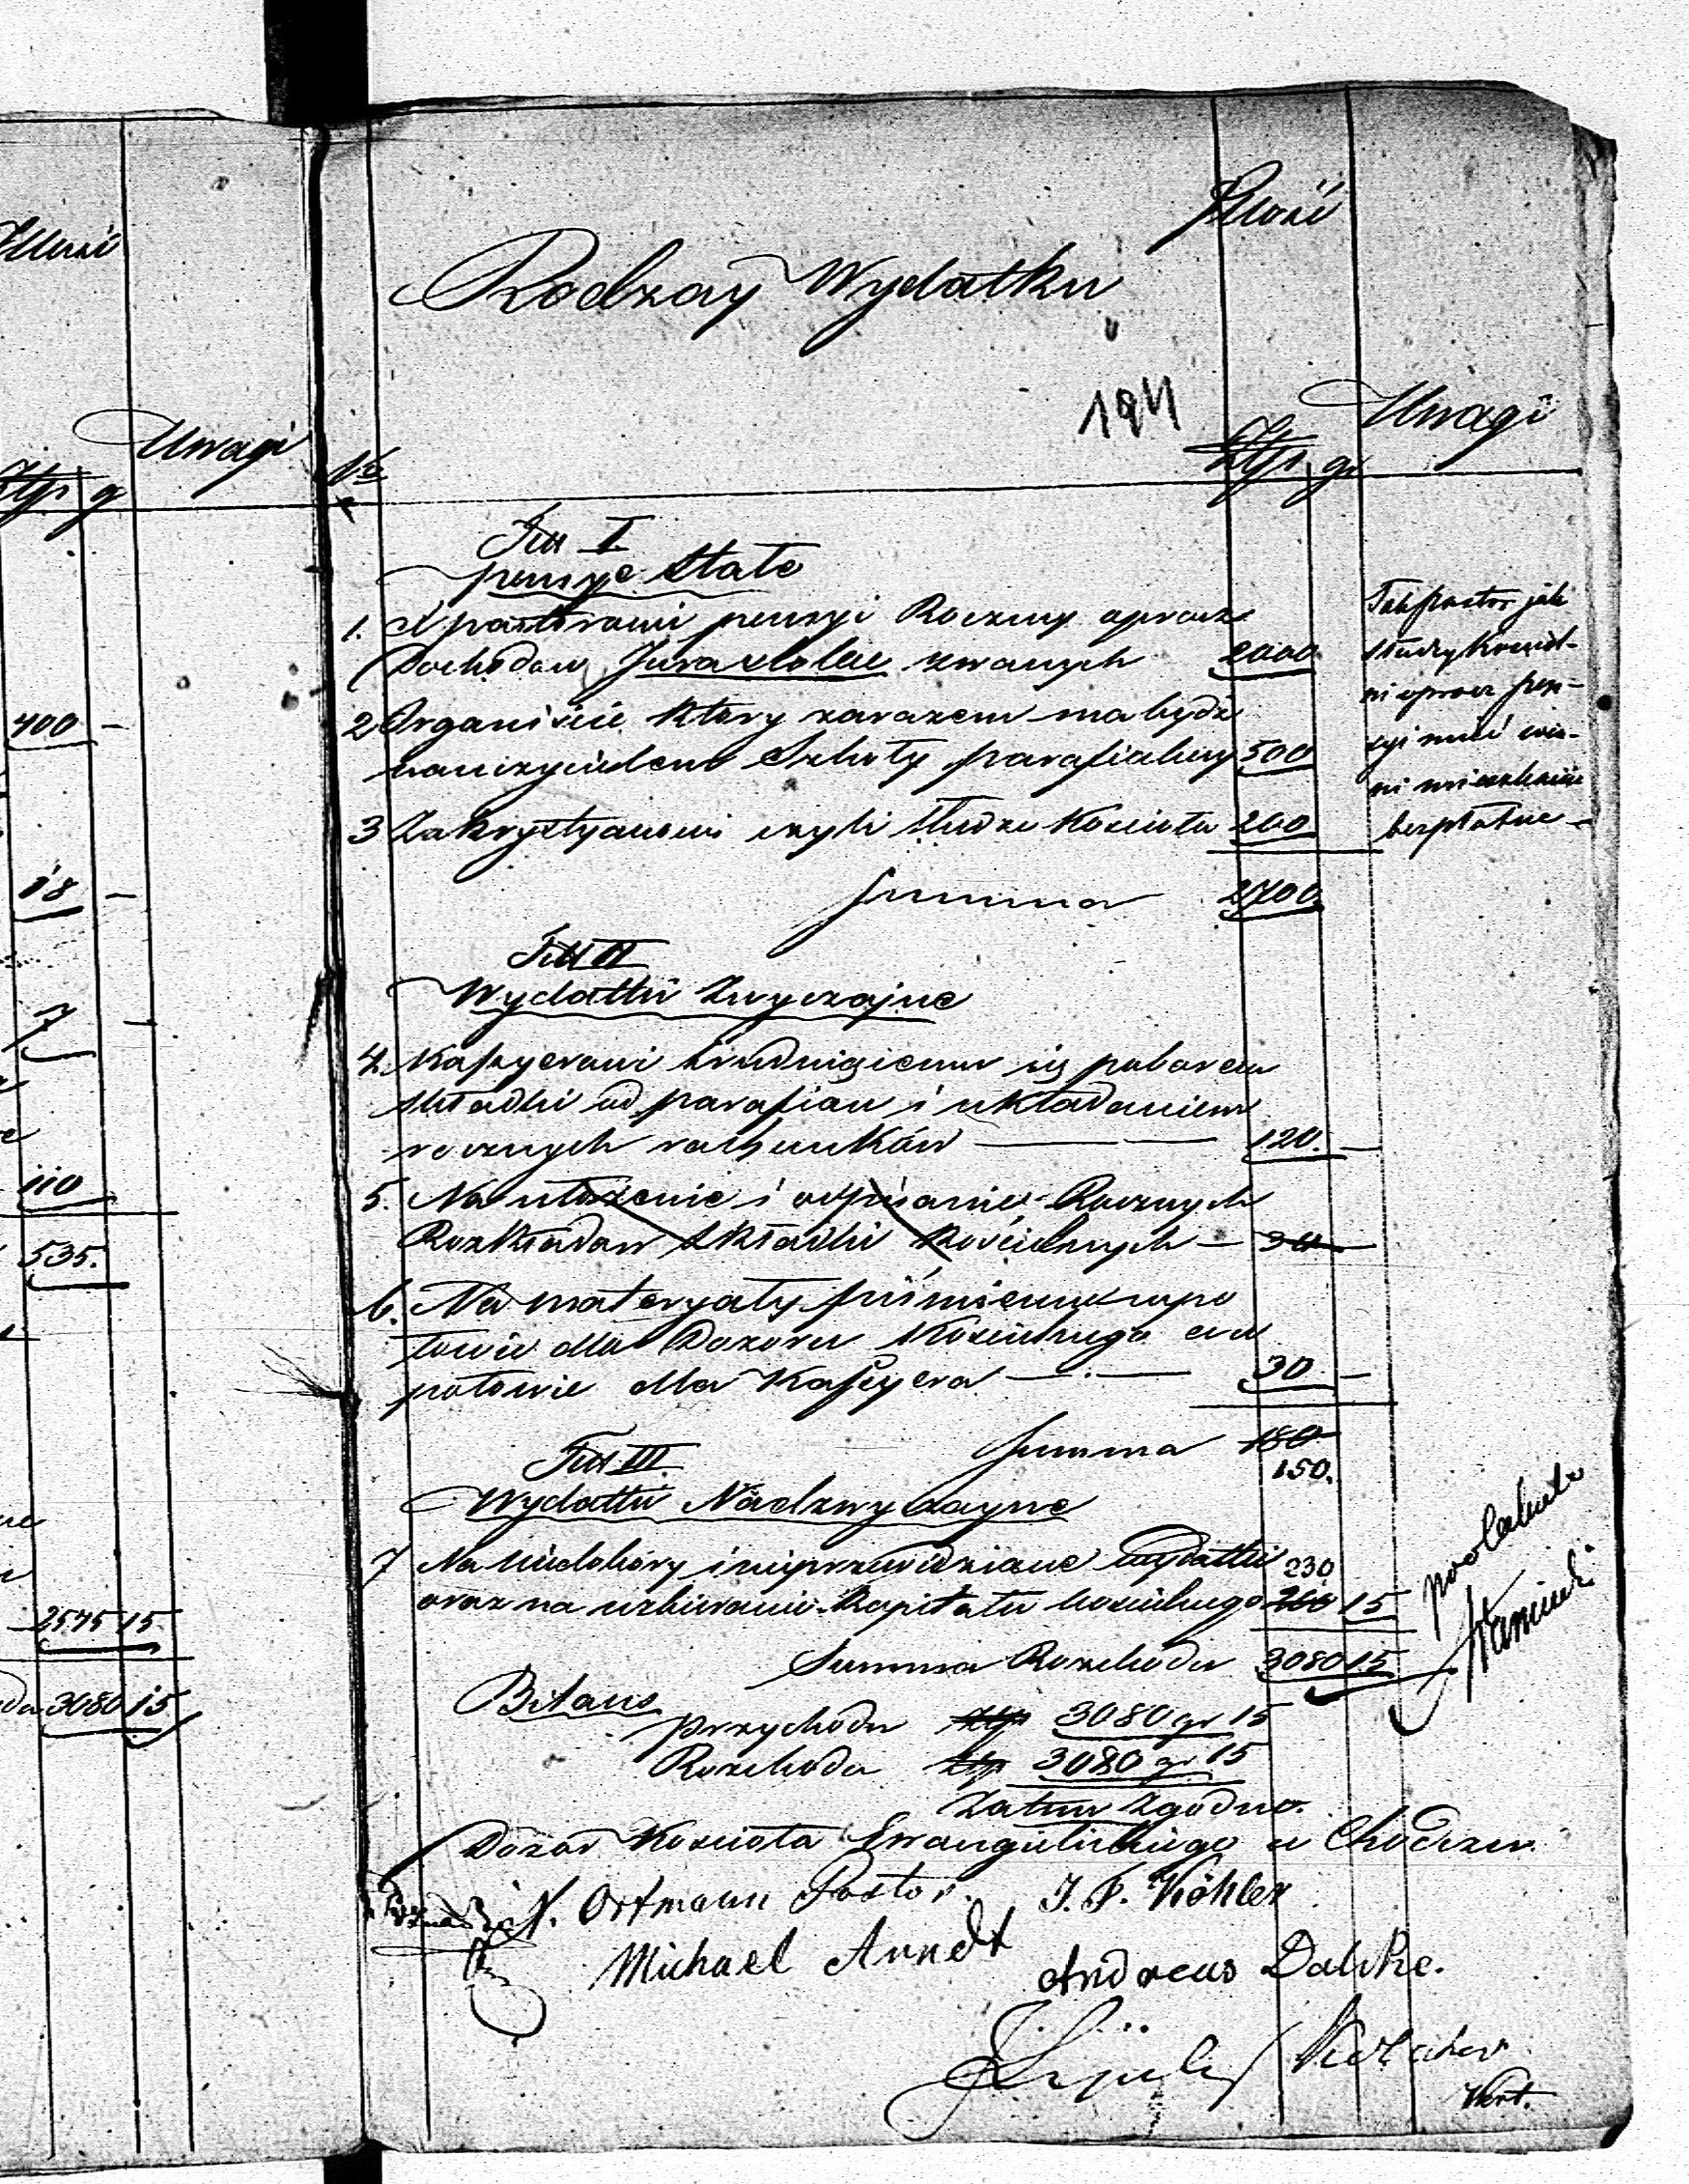 Ilość
Uwagi
Złp gr
400 —
18 —
7 —
110
535.
2575 15
3080 15
Ilość
Rodzay Wydatku
194
Uwagi
No
Złp gr
Tit I
pensye Stałe
1. pastorowi pensyi Roczney oprócz
Dochodow Jura stolae zwanych 2000
2 Organiście który zarazem ma bydź
nauczycielem Szkoły parafialney 500
3 Zakrystyanowi czyli słudze Kościoła 200
Tak pastor jak
słudzy Kościel-
ni oprocz pen-
syi mieć win-
ni mieszkanie
bezpłatne —
Summa 2700.
Tit II
Wydatki Zwyczajne
4. Kassyerowi trudniącemu się poborem
składki od parafian i układaniem
rocznych rachunków — — 120. —
5. Na ułożenie i odpisanie Rocznych
Rozkładow Składki Kościelnych — 30 —
6. Na materyały piśmienne w po
łowie dla Dozoru Kościelnego a w
połowie dla Kassyera — . — 30 —
Summa 180
150.
Tit III
Wydatki Nadzwyczayne
7 Na niedobory i nieprzewidziane wydatki 230
oraz na uzbieranie Kapitału kościelnego 200 15
Summa Rozchodu 3080 15
Bilans
przychodu złp 3080 gr 15
Rozchodu złp 3080 gr 15
Zatem Zgodno.
Dozór Kościoła Ewangelickiego w Chodczu.
Ortmann Pastor. J. F. Köhler
Michael Arndt Andreas Dalke.